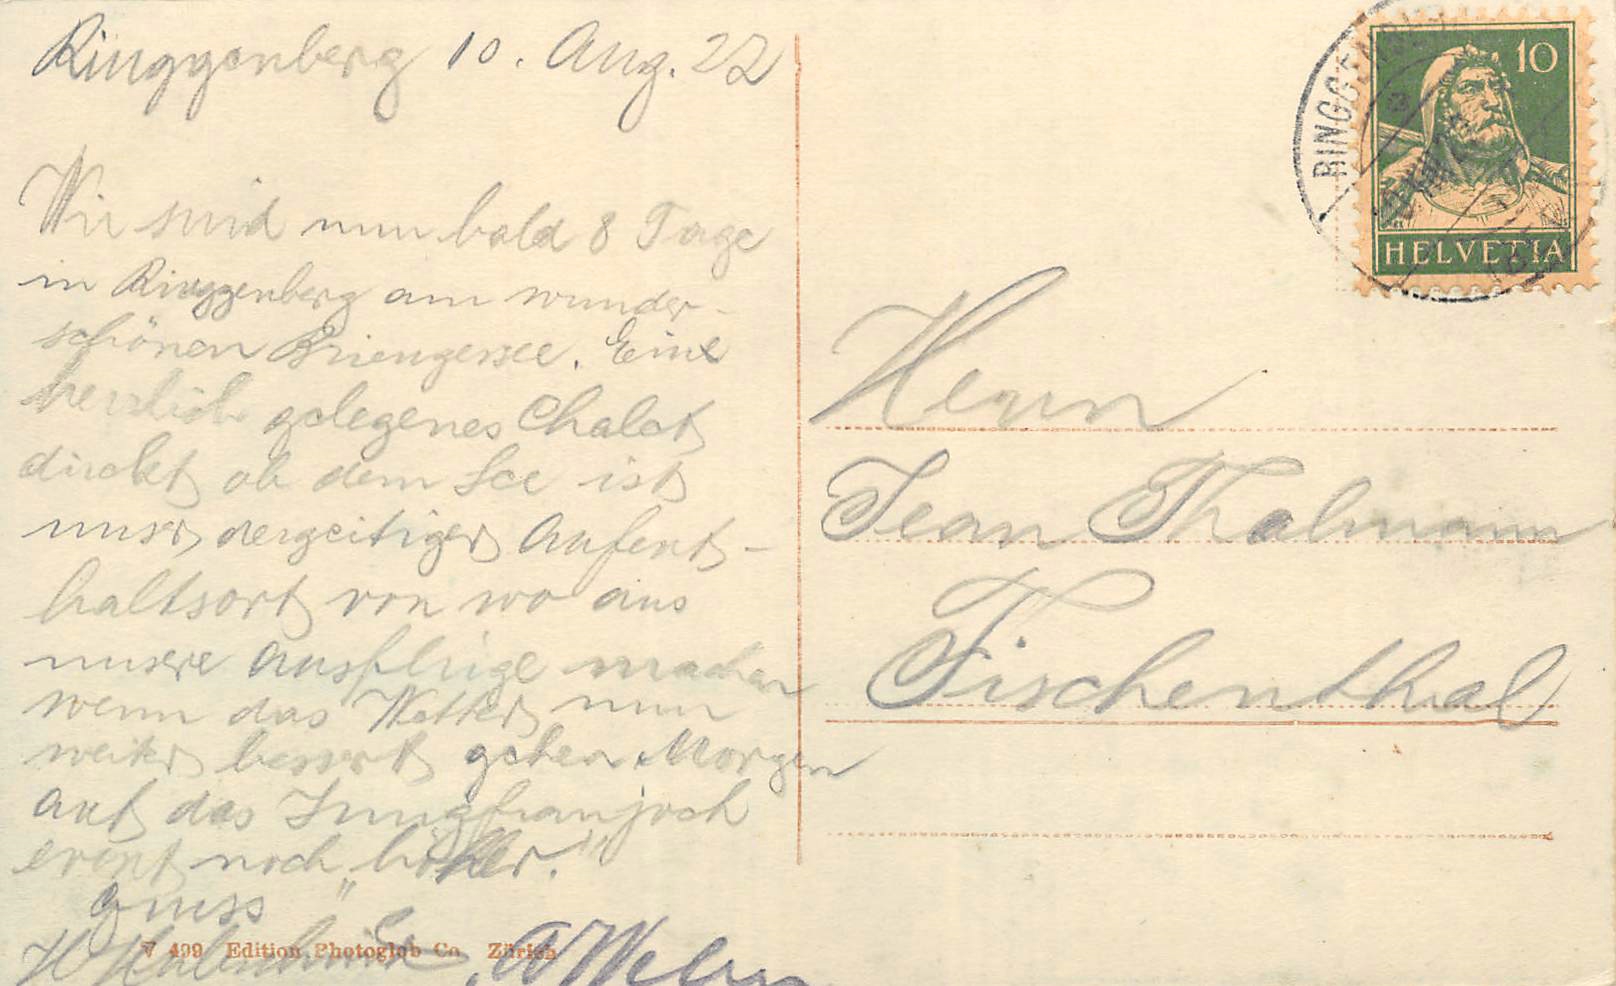 Ringgenberg 10. Aug. 22
Wir sind nun bald 8 Tage
in Ringgenberg am wunder-
schönen Brienzersee. Eine
herrlich gelegenes Chalet
direkt ob dem See ist
unser derzeitiger Aufent-
haltsort von wo aus
unsere Ausflüge machen
wenn das Wetter nun
weiter bessert gehen Morgen
auf das Jungfraujoch
event noch höher.
Gruss
V 499 Edition Photoglob Co Zürich
Weber
RINGGENBERG
10
HELVETIA
Herrn
Jean Thalmann
Fischenthal